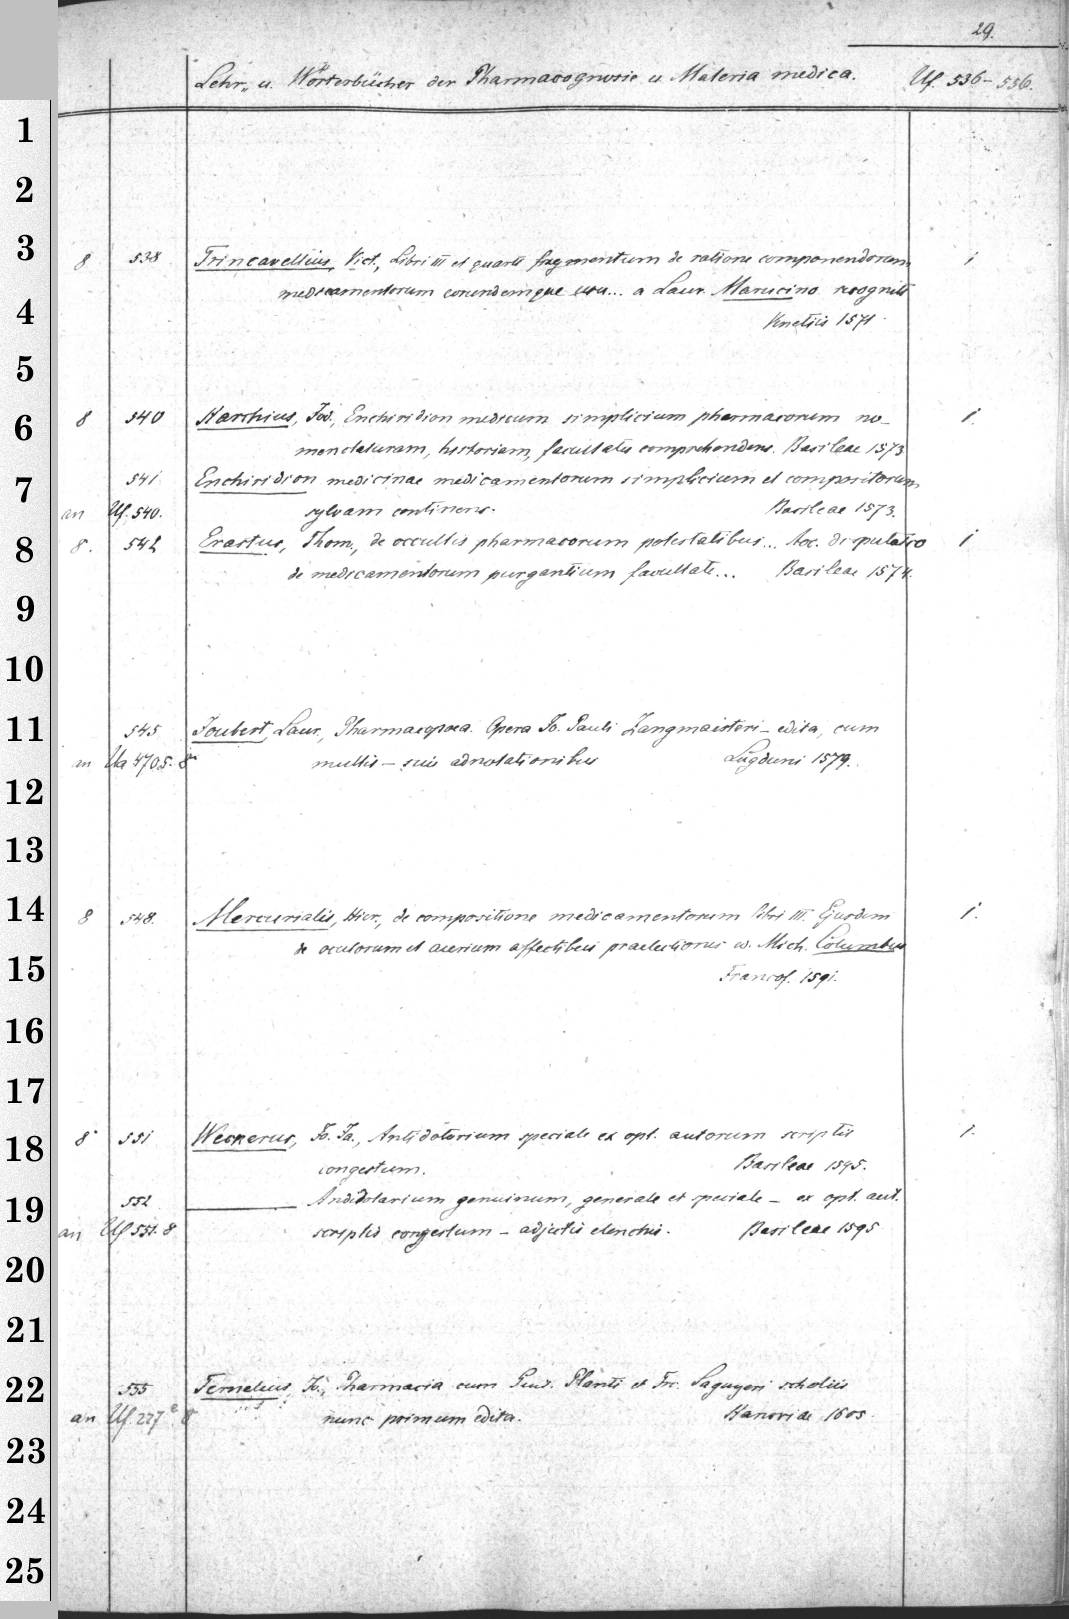 29.
Lehr- u. Wörterbücher der Pharmacognosie u. Materia medica. Uf. 536-556.
1
2
3
8 538 Trincavellius, Vict., Libri III et quarti fragmentum de ratione componendorum 1
medicamentorum eorundemque usu... a Laur. Marucino recogniti
4
Venetiis 1571.
5
6
8 540 Harchius, Jod., Enchiridion medicum simplicium pharmacorum no- 1.
menclaturam, historiam, facultates comprehendens. Basileae 1573
7
541 Enchiridion medicinae medicamentorum simplicium et compositorum
an Uf. 540. sylvam continens. Basileae 1573.
8
8. 542 Erastus, Thom., de occultis pharmacorum potestatibus... Acc. disputatio 1
de medicamentorum purgantium facultate... Basileae 1574.
9
10
11
545 Joubert, Laur., Pharmacopoea. Opera Jo. Pauli Zangmaisteri - edita, cum
an Ua 4705. 8° multis - suis adnotationibus Lugduni 1579.
12
13
14
8 548. Mercurialis, Hier., de compositione medicamentorum libri III. Ejusdem 1.
de oculorum et aurium affectibus praelectiones ed. Mich. Columbus
15
Francof. 1591.
16
17
18
8° 551 Weckerus, Jo. Ja., Antidotarium speciale ex opt. autorum scriptis 1.
congestum. Basileae 1595.
19
552 Antidotarium genuinum, generale et speciale - ex opt. aut.
an Uf 551. 8 scriptis congestum - adjectis elenchis. Basileae 1595
20
21
22
555 Fernelius, Jo., Pharmacia cum Guil. Plantii et Fr. Saguyeri scholiis
an Uf. 227 8 nunc primum edita. Hanoviae 1605.
23
24
25